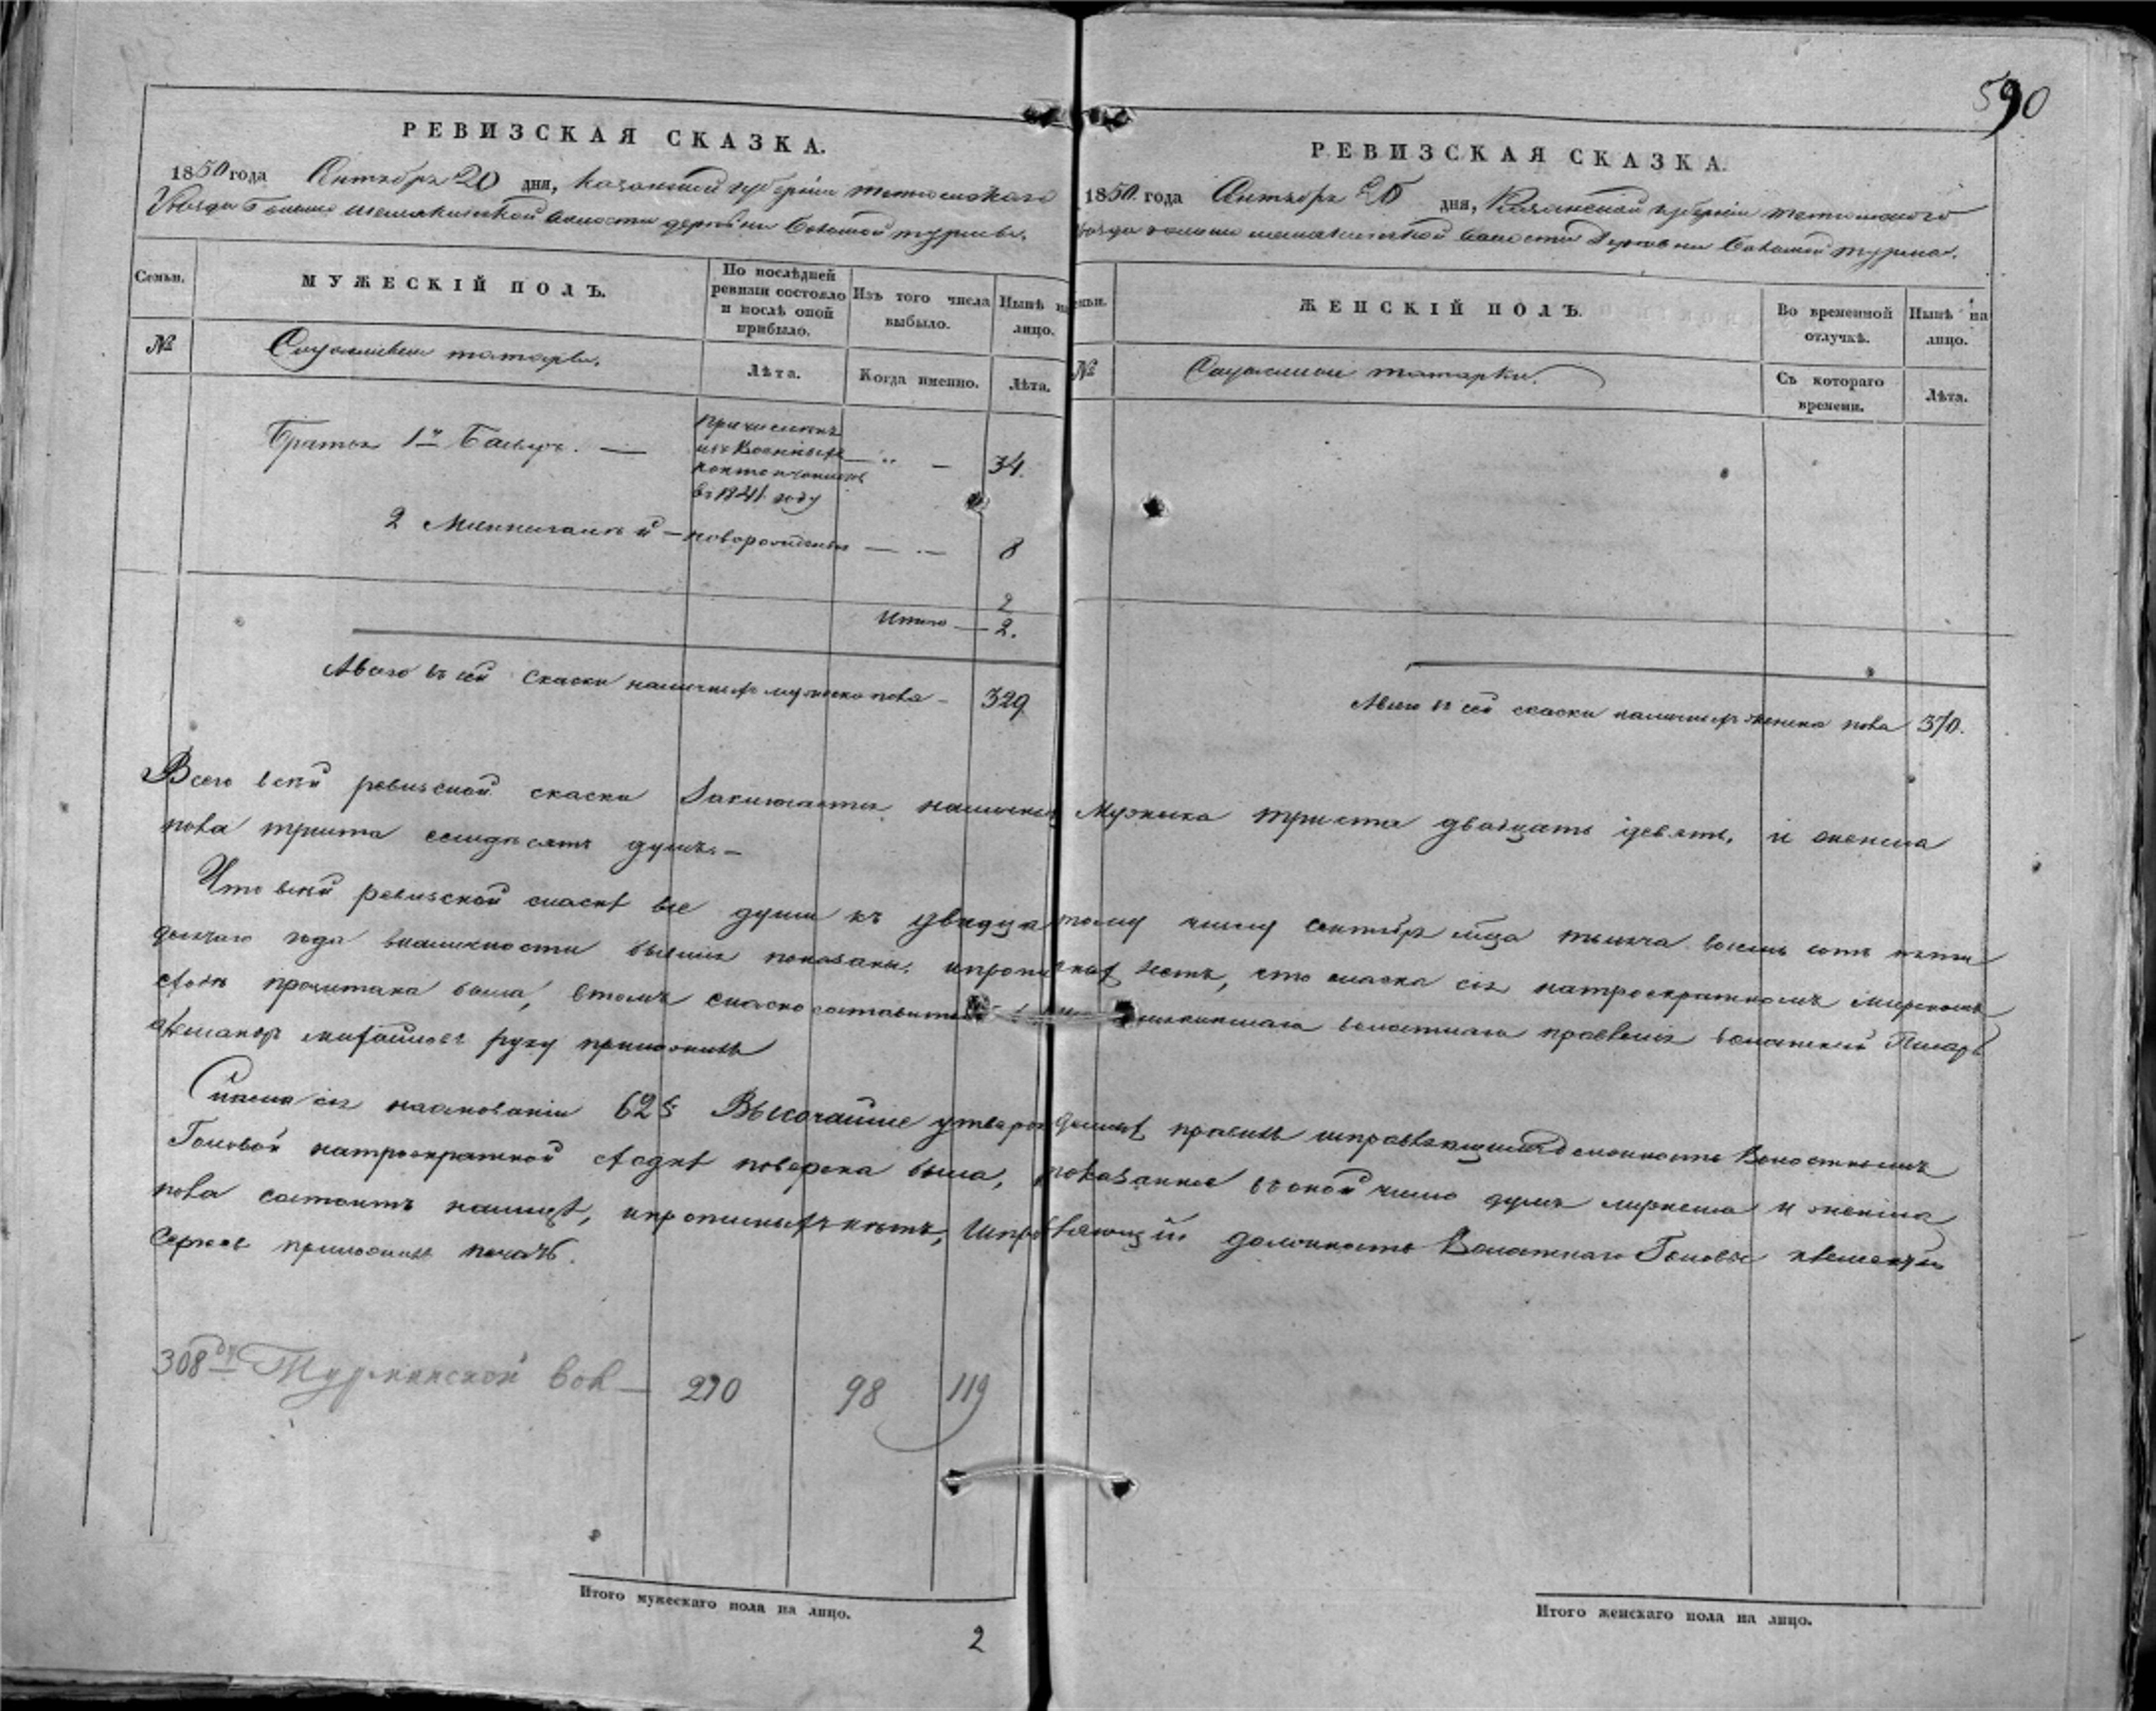 590
РЕВИЗСКАЯ СКАЗКА.
1850 года Сентября 20 дня, Казанской губернии тетюшскаго
Уезда Больше шемякинской волости деревни Большой турмы.
Семьи. МУЖЕСКІЙ ПОЛЪ. По послѣдней ревизіи состояло и послѣ оной прибыло. Изъ того числа выбыло. Нынѣ на лицо.
№ татары. Лѣта. Когда именно. Лѣта.
Братья 1й — причисленъ изъ Военныхъ кантонистовъ въ 1841 году — „ — 34.
2 — новорожденъ — „ — 8
2
Итого — 2.
Авсего въ сей скаски наличныхъ мужска пола — 329
РЕВИЗСКАЯ СКАЗКА.
1850 года Сентября 20 дня, Казанской губерніи тетюшскаго
шемякинской волости деревни Большой турмы.
№ ЖЕНСКІЙ ПОЛЪ. Во временной отлучкѣ. Нынѣ на лицо.
татарки. Съ котораго времени. Лѣта.
Авсего въ сей скаски наличныхъ женска пола 370.
Всего всей ревизской скаски Заключается наличныхъ Мужеска триста двадцать девять, и женска
пола триста семьдесятъ душъ. —
Что всей ревизской скаске все души къ двадцатому числу сентября мца тысяча восемь сотъ пяти
десятаго года вналичности бывшія показаны, нетъ, что скаска сія натроекратномъ мирскомъ
сходе прочитана была, втомъ волостнаго правленія волостной Писарь
михайловъ руку приложилъ
Скаска сія наосновании 62§ Высочайше утвержденныхъ правилъ исправляющимъ должность Волостнымъ
Головой натроекратной сходке поверена была, показанное въоной число душъ мужеска и женска
пола состоитъ налицо, исправляющій должность Волостнаго Головы
Сергеевъ приложилъ печать.
308 Турминской вол — 270 98 119
Итого мужескаго пола на лицо.
2
Итого женскаго пола на лицо.